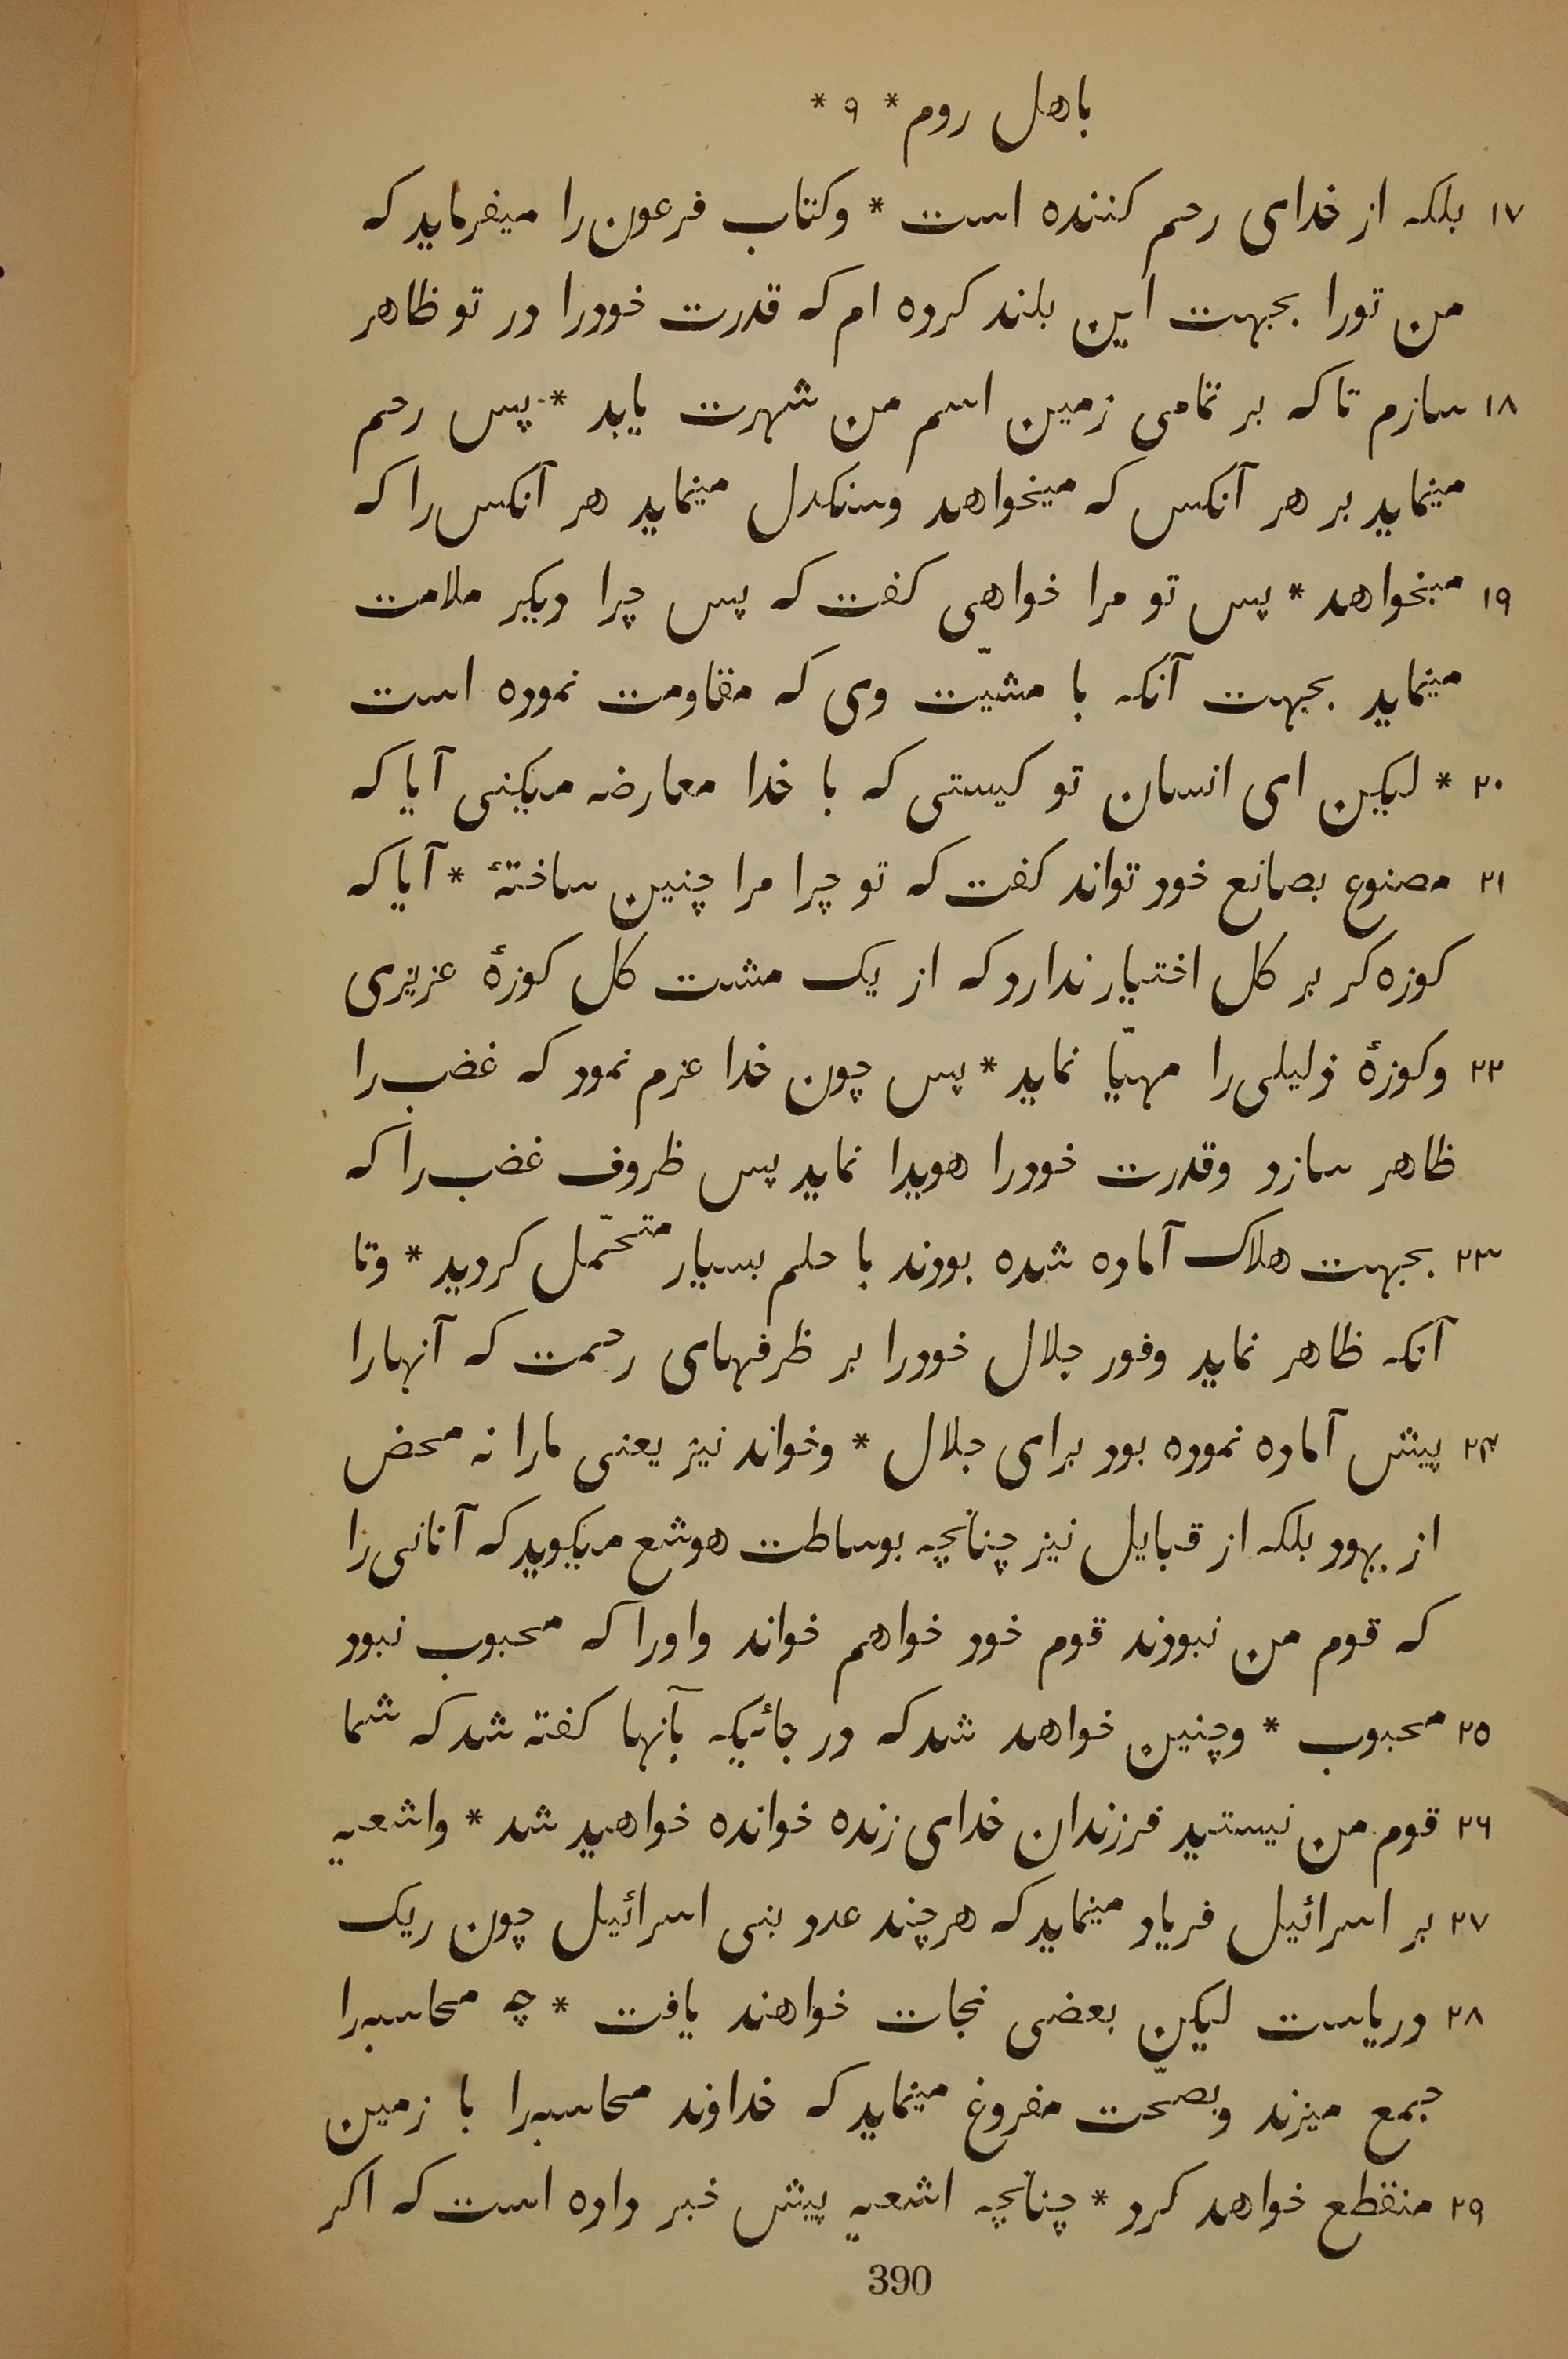 باهل روم * ۹ *
۱۷ بلکه از خدای رحم کننده است * وکتاب فرعون را میفرماید که
من تورا بجهت این بلند کرده ام که قدرت خودرا در تو ظاهر
۱۸ سازم تا که بر تمامی زمین اسم من شهرت یابد * پس رحم
مینماید بر هر آنکس که میخواهد وسنکدل مینماید هر آنکس را که
۱۹ میخواهد * پس تو مرا خواهی کفت که پس چرا دیکر ملامت
مینماید بجهت آنکه با مشیّت وی که مقاومت نموده است
۲۰ * لیکن ای انسان تو کیستی که با خدا معارضه میکنی آیا که
۲۱ مصنوع بصانع خود تواند کفت که تو چرا مرا چنین ساختهٔ * آیا که
کوزه کر بر کل اختیار ندارد که از یک مشت کل کوزهٔ عزیزی
۲۲ وکوزهٔ ذلیلی را مهیّا نماید * پس چون خدا عزم نمود که غضب را
ظاهر سازد وقدرت خودرا هویدا نماید پس ظروف غضب را که
۲۳ بجهت هلاک آماده شده بودند با حلم بسیار متحمّل کردید * وتا
آنکه ظاهر نماید وفور جلال خودرا بر ظرفهای رحمت که آنهارا
۲۴ پیش آماده نموده بود برای جلال * وخواند نیز یعنی مارا نه محض
از یهود بلکه از قبایل نیز چنانچه بوساطت هوشع میکوید که آنانی را
که قوم من نبودند قوم خود خواهم خواند واورا که محبوب نبود
۲۵ محبوب * وچنین خواهد شد که در جائیکه بآنها کفته شد که شما
۲۶ قوم من نیستید فرزندان خدای زنده خوانده خواهید شد * واشعیه
۲۷ بر اسرائیل فریاد مینماید که هرچند عدد بنی اسرائیل چون ریک
۲۸ دریاست لیکن بعضی نجات خواهند یافت * چه محاسبه را
جمع میزند وبصحّت مفروغ مینماید که خداوند محاسبه را با زمین
۲۹ منقطع خواهد کرد * چنانچه اشعیه پیش خبر داده است که اکر
390